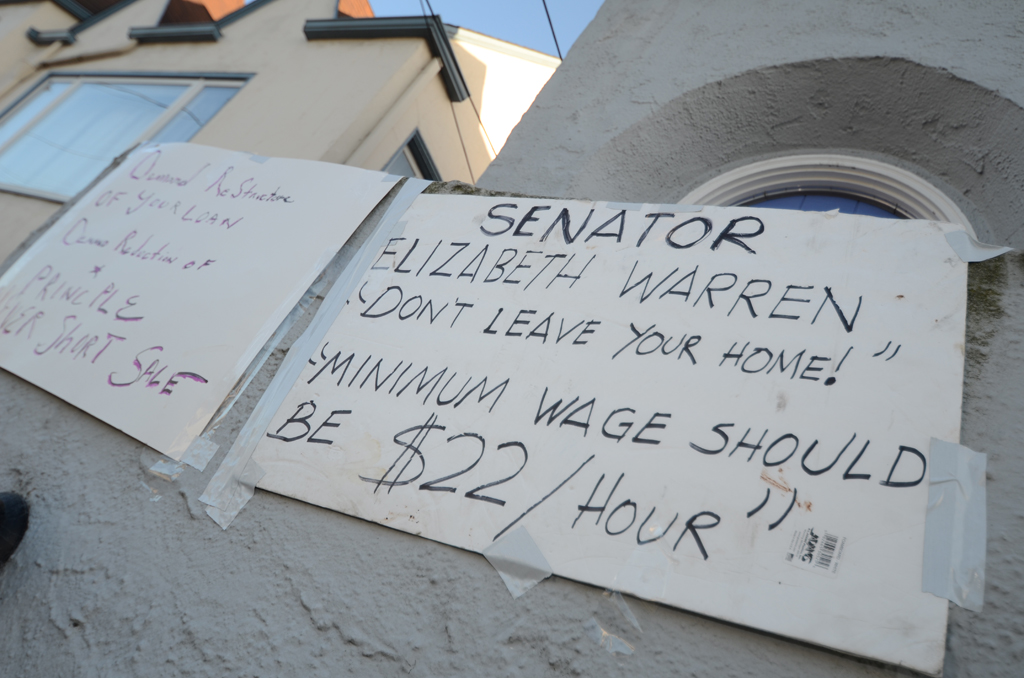 Demand ReStructure
OF YOUR LOAN
Demand Reduction OF
*
PRINCIPLE
SHORT SALE
SENATOR
ELIZABETH WARREN
"DON'T LEAVE YOUR HOME!"
"MINIMUM WAGE SHOULD
BE $22/HOUR"